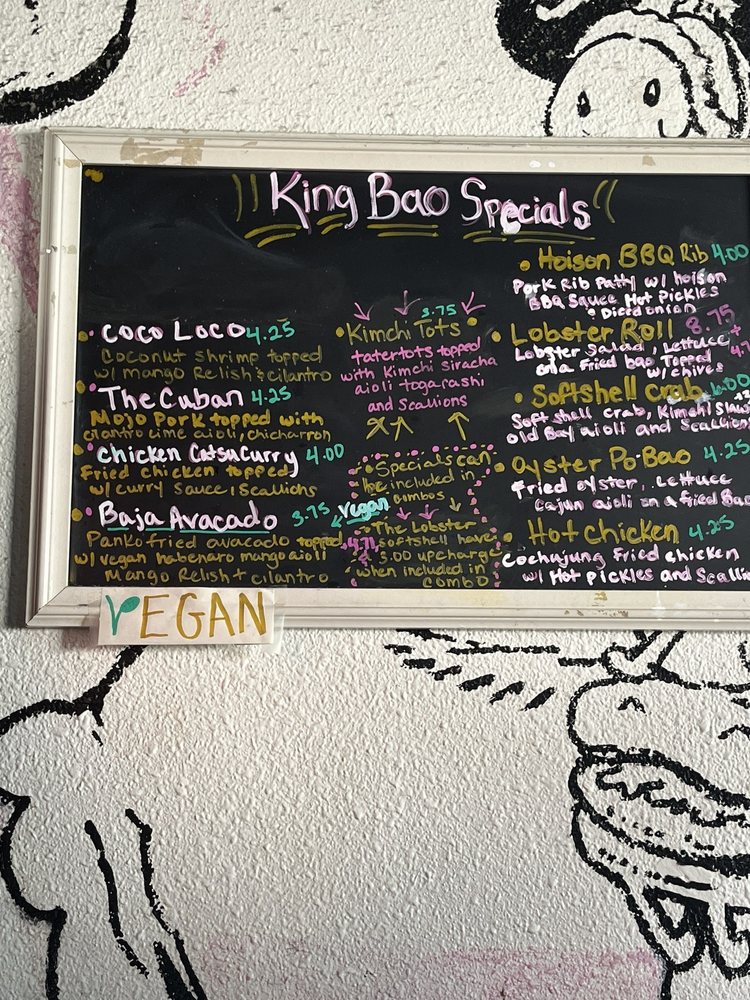 King Bao Specials
Coco Loco 4.25
Coconut shrimp topped
w/ mango Relish & cilantro
The Cuban 4.25
Mojo Pork topped with
cilantro lime aioli, chicharron
Chicken Catsu Curry 4.00
Fried chicken topped
w/ curry sauce, scallions
Baja Avacado 3.75 vegan
Panko fried avocado topped
w/ vegan habenaro mango aioli
Mango Relish + cilantro
3.75
Kimchi Tots
tatertots topped
with Kimchi siracha
aioli togarashi
and scallions
Specials can
be included in
combos
The Lobster
softshell have
3.00 upcharge
when included in
combo
Hoison BBQ Rib 4.00
Pork Rib Patty w/ hoison
BBQ Sauce Hot Pickles
+ Diced onion
Lobster Roll 8.75
Lobster Salad, Lettuce
on a Fried bao Topped
w/ chives
Softshell crab 6.00
Soft shell crab, Kimchi Slaw
old Bay aioli and Scallions
Oyster Po-Bao 4.25
Fried oyster, Lettuce
Cajun aioli on a fried Bao
Hot Chicken 4.25
Cochujung Fried chicken
w/ Hot pickles and
VEGAN